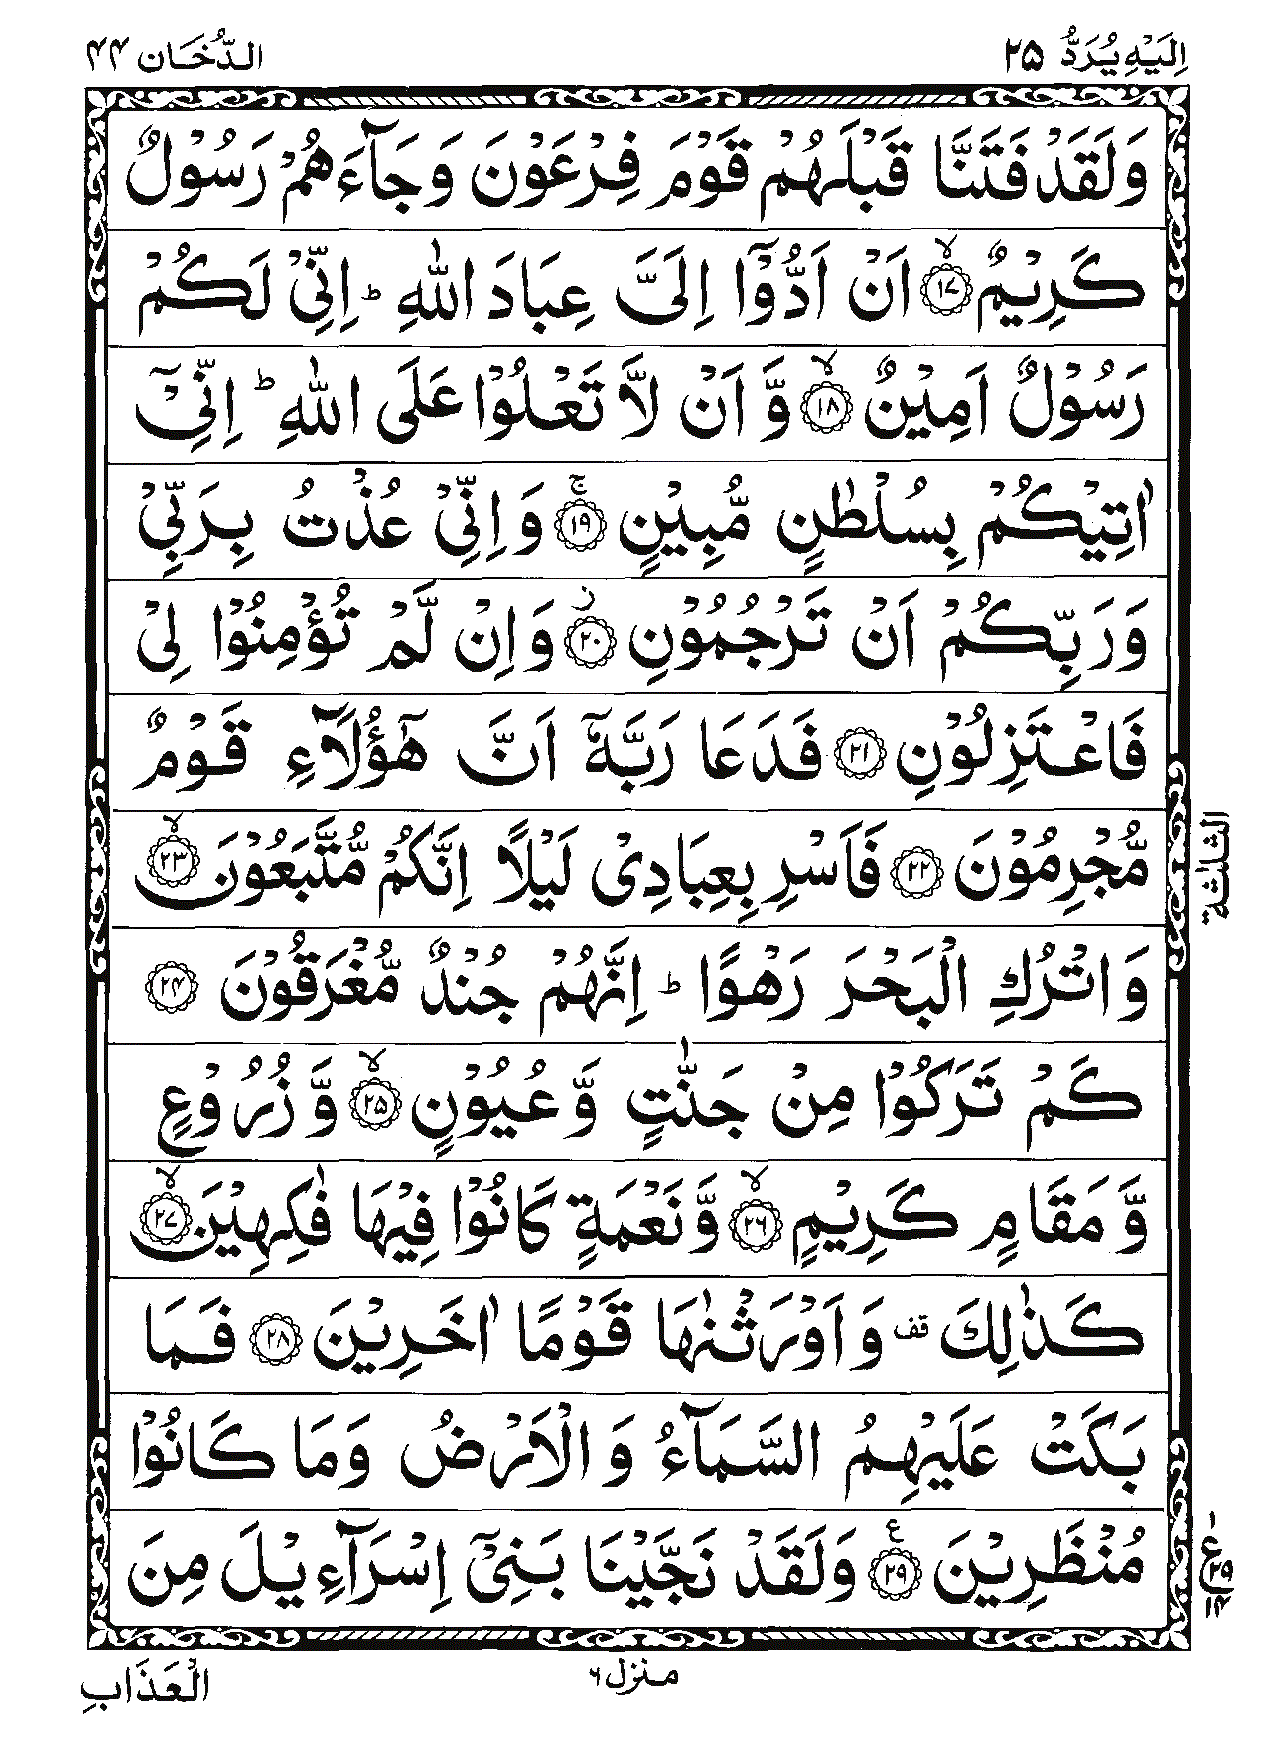 اِلَيْهِ يُرَدُّ ۲۵ الدُّخَان ۴۴
وَلَقَدْ فَتَنَّا قَبْلَهُمْ قَوْمَ فِرْعَوْنَ وَجَآءَهُمْ رَسُوْلٌ
كَرِيْمٌ ۙ‏﴿۱۷﴾ اَنْ اَدُّوْٓا اِلَىَّ عِبَادَ اللّٰهِ ؕ اِنِّىْ لَكُمْ
رَسُوْلٌ اَمِيْنٌ ۙ‏﴿۱۸﴾ وَّ اَنْ لَّا تَعْلُوْا عَلَى اللّٰهِ ؕ اِنِّىْۤ
اٰتِيْكُمْ بِسُلْطٰنٍ مُّبِيْنٍ ۚ‏﴿۱۹﴾ وَاِنِّىْ عُذْتُ بِرَبِّىْ
وَرَبِّكُمْ اَنْ تَرْجُمُوْنِ ز‏﴿۲۰﴾ وَاِنْ لَّمْ تُؤْمِنُوْا لِىْ
فَاعْتَزِلُوْنِ‏﴿۲۱﴾ فَدَعَا رَبَّهٗۤ اَنَّ هٰٓؤُلَآءِ قَوْمٌ
مُّجْرِمُوْنَ‏﴿۲۲﴾ فَاَسْرِ بِعِبَادِىْ لَيْلًا اِنَّكُمْ مُّتَّبَعُوْنَ ۙ‏﴿۲۳﴾
وَاتْرُكِ الْبَحْرَ رَهْوًا ؕ اِنَّهُمْ جُنْدٌ مُّغْرَقُوْنَ‏﴿۲۴﴾
كَمْ تَرَكُوْا مِنْ جَنّٰتٍ وَّ عُيُوْنٍ ۙ‏﴿۲۵﴾ وَّ زُرُوْعٍ
وَّ مَقَامٍ كَرِيْمٍ ۙ‏﴿۲۶﴾ وَّ نَعْمَةٍ كَانُوْا فِيْهَا فٰكِهِيْنَ ۙ‏﴿۲۷﴾
كَذٰلِكَ قف وَ اَوْرَثْنٰهَا قَوْمًا اٰخَرِيْنَ‏﴿۲۸﴾ فَمَا
بَكَتْ عَلَيْهِمُ السَّمَآءُ وَ الْاَرْضُ وَمَا كَانُوْا
مُنْظَرِيْنَ ع‏﴿۲۹﴾ وَلَقَدْ نَجَّيْنَا بَنِىْۤ اِسْرَآءِيْلَ مِنَ
الثلٰثة
۱
ع
۲۹
۱۴
منزل ۶
الْعَذَابِ